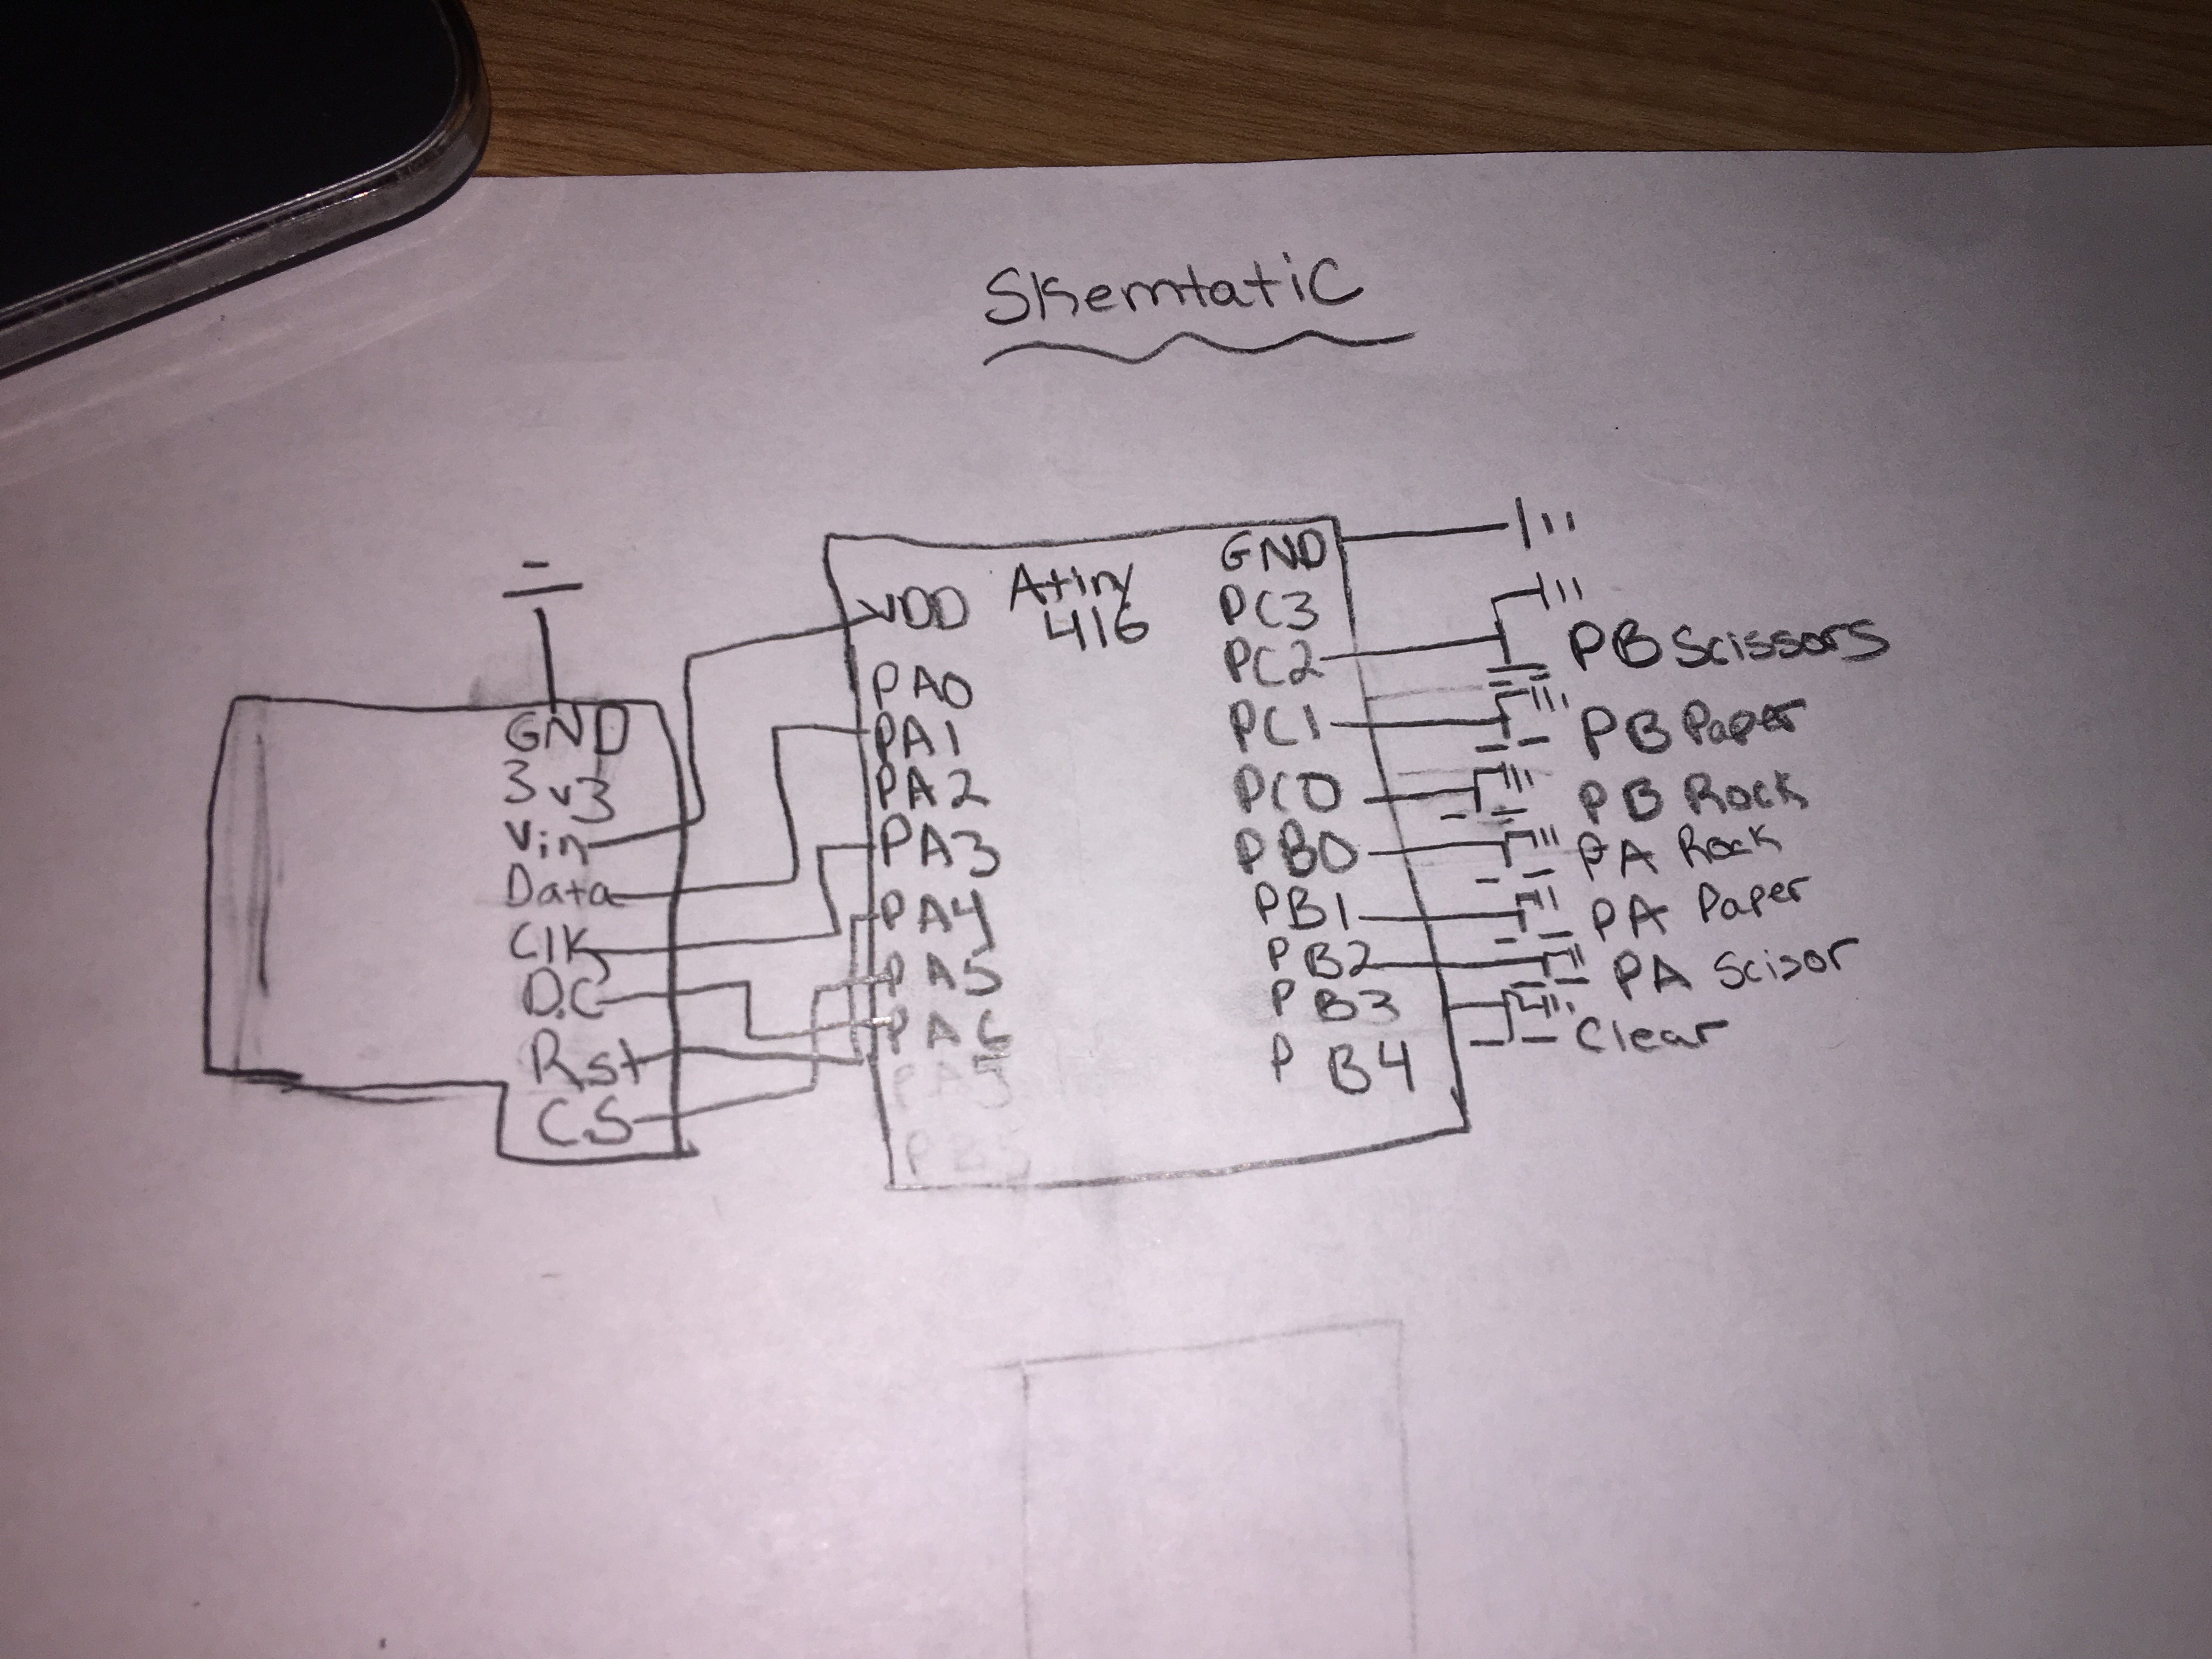 Shemtatic
GND
3v3
Vin
Data
Clk
D.C
Rst
C.S
Attiny
416
VDD
PA0
PA1
PA2
PA3
PA4
PA5
PA6
GND
PC3
PC2
PC1
PC0
PB0
PB1
PB2
PB3
PB4
PB Scissors
PB Paper
PB Rock
PA Rock
PA Paper
PA Scisor
Clear